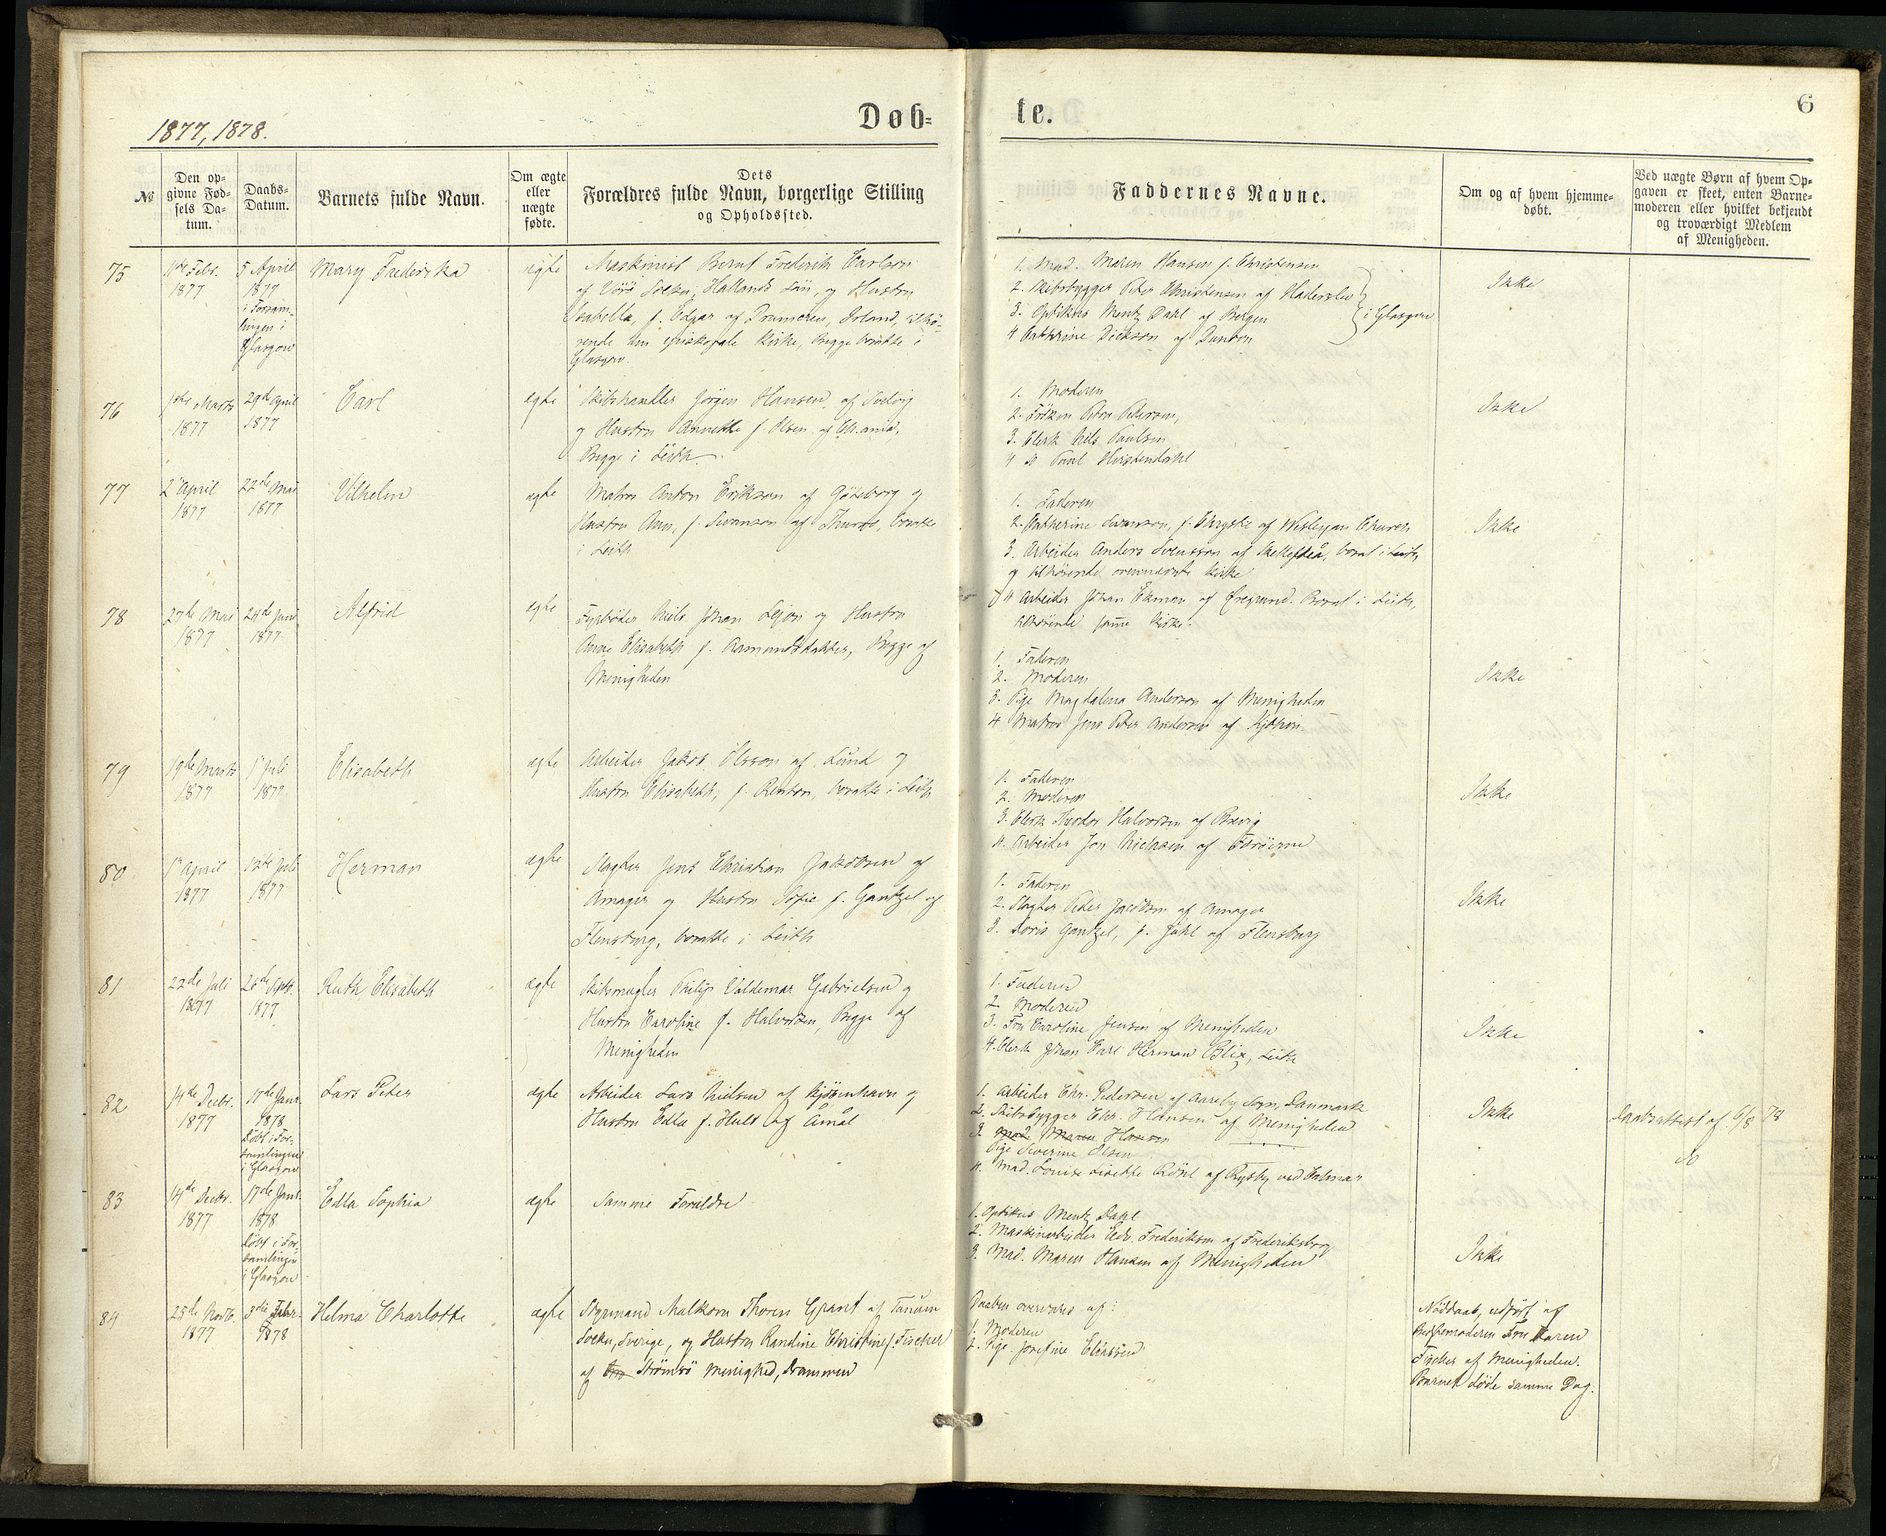 1877, 1878.
Døb=
te.
6
№
Den op-
givne Fød-
sels Da-
tum.
Daabs-
Datum.
Barnets fulde Navn.
Om ægte
eller
uægte
fødte.
Dets
Forældres fulde Navn, borgerlige Stilling
og Opholdssted.
Faddernes Navne.
Om og af hvem hjemme-
døbt.
Ved uægte Børn af hvem Op-
gaven er skeet, enten Barne-
moderen eller hvilket bekjendt
og troværdigt Medlem
af Menigheden.
75
1ste Febr.
1877
5 April
1877
i Forsam-
lingen i
Glasgow
Mary Frederika
ægte
Maskinist Bernt Frederik Carlson
af Socken, Hallands Län, og Hustru
Isabella, f. Edgar af Irland, tilhø-
rende den episkopale Kirke, Begge bosatte i
Glasgow.
1. Mad. Maren Hansen f. Christensen
2. Skibsbygger Peter Christensen af Haderslev
3. Optikus Mentz Dahl af Bergen
4 Cathrine Dickson af Dunoon
i Glasgow
Ikke
76
1ste Marts
1877
29de April
1877
Carl
ægte
Skibshandler Jørgen Hansen af Svelvig
og Hustru Annette f. Olsen af Ch.ania,
Begge i Leith.
1. Moderen
2. Frøken Petra Petersen,
3. Clerk Nils Paulsen
4 Paul Hvistendahl
Ikke
77
2 April
1877
22de Mai
1877
Vilhelm
ægte
Matros Anton Erikson af Göteborg og
Hustru Ann, f. Swanson af Thurso, bosatte
i Leith
1. Faderen
2. Catherine Swanson, f. af Wesleyan Church
3. Arbeider Anders Svensson af Skellefteå, bosat i Leith,
og tilhørende ovennævnte Kirke
4 Arbeider Johan Ekman af Öregrund. Bosat i Leith,
tilhørende samme Kirke.
Ikke
78
27de Mai
1877
24de Juni
1877
Alfrid
ægte
Fyrbøder Nils Johan Lejon og Hustru
Anne Elisabeth f. Aamundsdatter, Begge af
Menigheden
1. Faderen
2. Moderen
3. Pige Magdalena Anderson af Menigheden
4 Matros Jens Peter Andersen af Kjøbhvn.
Ikke
79
19de Marts
1877
1 Juli
1877
Elisabeth
ægte
Arbeider Jakob Olsson af Lund og
Hustru Elisabeth, f. Renton, bosatte i Leith
1. Faderen
2. Moderen
3. Clerk Theodor Halvorsen af Brevig
4. Arbeider Jon Nielsen af Færöerne
Ikke
80
1 April
1877
12te Juli
1877
Herman
ægte
Slagter Jens Christian Jakobsen af
Amager og Hustru Sofie f. Gantzel af
Flensburg, bosatte i Leith
1. Faderen
2. Slagter Peter Jacobsen af Amager
3. Doris Gantzel, f. Juhl af Flensburg
Ikke
81
22de Juli
1877
26de Septb.
1877
Ruth Elisabeth
ægte
Skibsmægler Philip Valdemar Gabrielsen og
Hustru Caroline f. Halvorsen, Begge af
Menigheden
1. Faderen
2. Moderen
3. Fru Caroline Jensen af Menigheden
4. Clerk Johan Carl Herman Blix, Leith
Ikke
82
14de Decbr.
1877
17de Janr.
1878
Døbt i For-
samlingen
i Glasgow
Lars Peter
ægte
Arbeider Lars Nielsen af Kjøbenhavn og
Hustru Edla f. Hult af Åmål
1. Arbeider Chr. Pedersen af Aareby Sogn, Danmark
2. Skibsbygger Chr. Hansen af Menigheden
3. Mad. Maren Hansen
Pige Severine Olsen
4. Mad. Louise af Ryssby ved Kalmar
Ikke
Daabsattest af 6/8 78
83
14de Decbr.
1877
17de Janr.
1878
Døbt i For-
samlingen
i Glasgow
Edla Sophia
ægte
Samme Forældre
1. Optikus Mentz Dahl
2. Maskinarbeider Edv. Frederiksen af Frederiksborg
3. Mad. Maren Hansen af Menigheden
Ikke
Do
84
25de Novb.
1877
3die Febr.
1878
Helma Charlotte
ægte
Styrmand Malkom Thoren Grant af Tanum
Socken, Sverige, og Hustru Randine Christine f. Fischer
af Strømsø Menighed, Drammen
Daaben overværes af:
1. Moderen
2. Pige Josefine Eliassen
Nøddaab, udført af
Bedstemoderen Fru Karen
Fischer af Menigheden.
Barnet døde samme Dag.